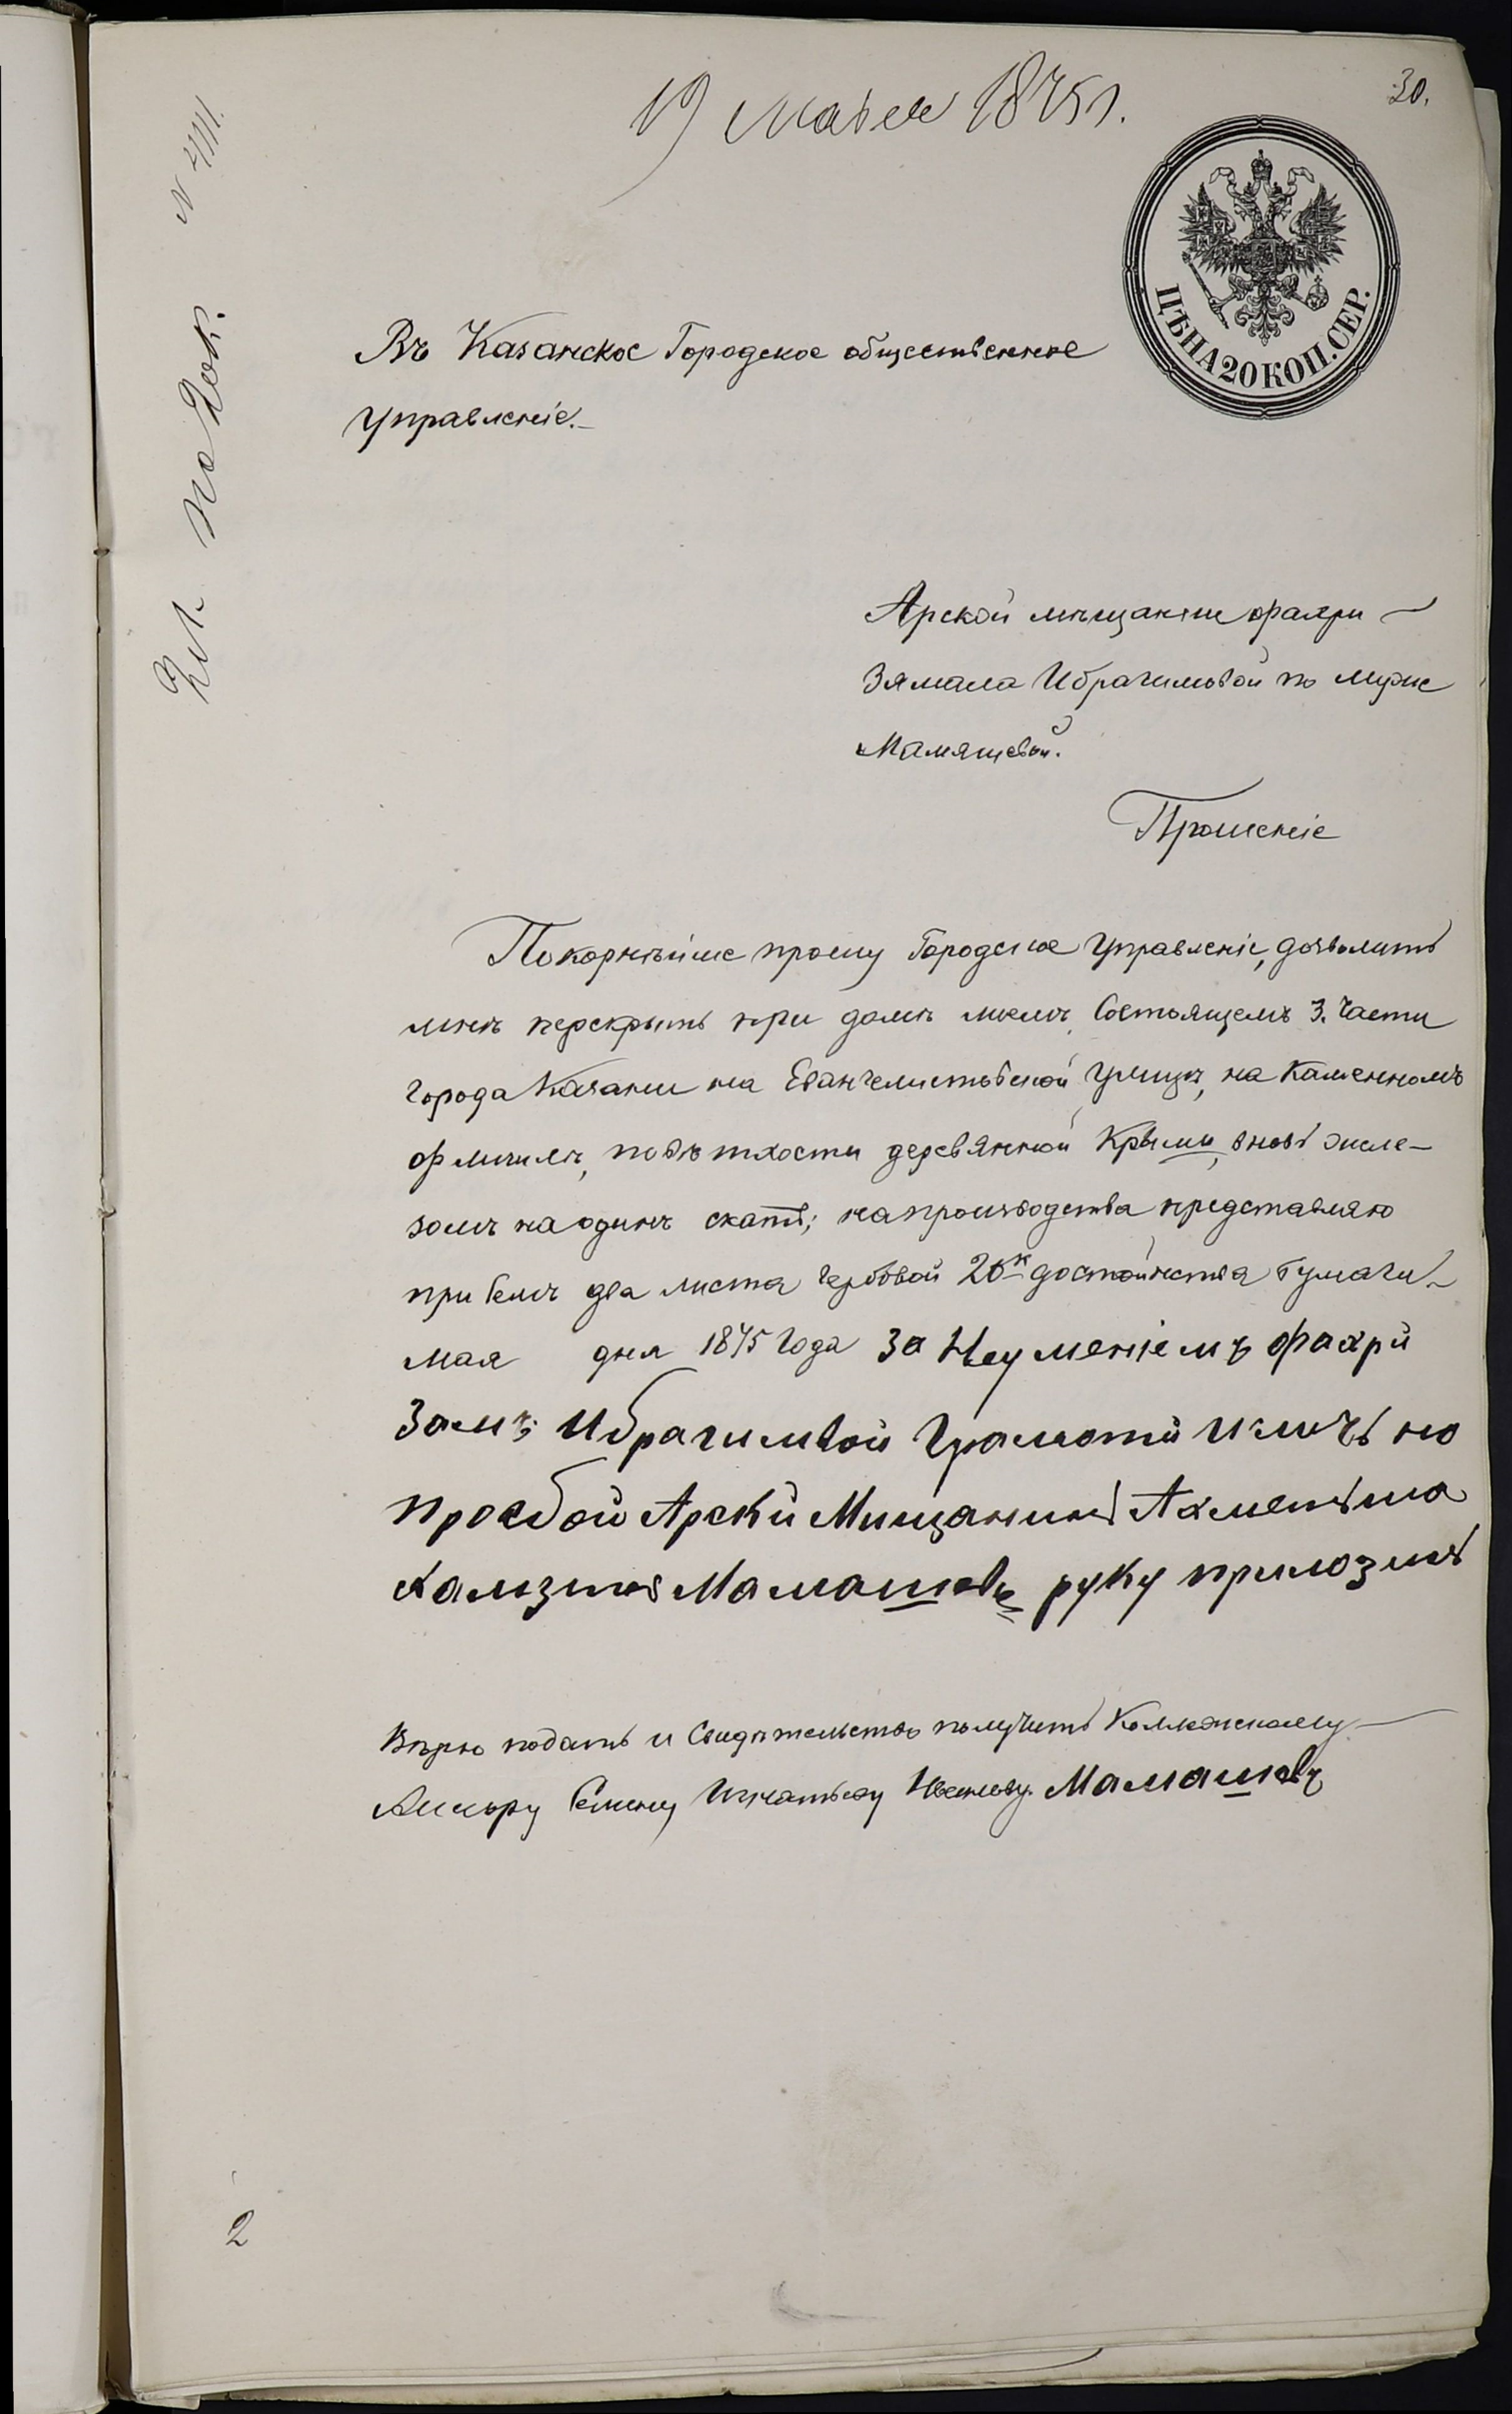 19 Мая 1875 г.
30.
N 4111.
2 л. по 20 к.
ЦѢНА 20 КОП. СЕР.
Въ Казанское Городское общественное
Управленіе.
Арской мѣщанки Фахри-
Зямала Ибрагимовой по мужѣ
Мамяшевой.
Прошеніе
Покорнѣйше прошу Городское Управленіе, дозволить
мнѣ перекрыть при домѣ моемъ, Состоящемъ 3. Части
города Казани на Евангелистовской Улицѣ, на Каменномъ
флигилѣ, по вѣтхости деревянной Крыши, вновь желе-
зомъ на одинъ скатъ; на производства представляю
при семъ два листа гербовой 20 к достоинства бумаги.
Мая дня 1875 Года За Неуменіемъ Фахри
Зам: Ибрагимвой Грамоти
просбой Арски Мищанинъ Ахметша
Мамашевъ руку прилозилъ
Вѣрю подать и Свидѣтельство получить Коллежскому
Ассесору Семену Игнатьеву Мамашевъ
2